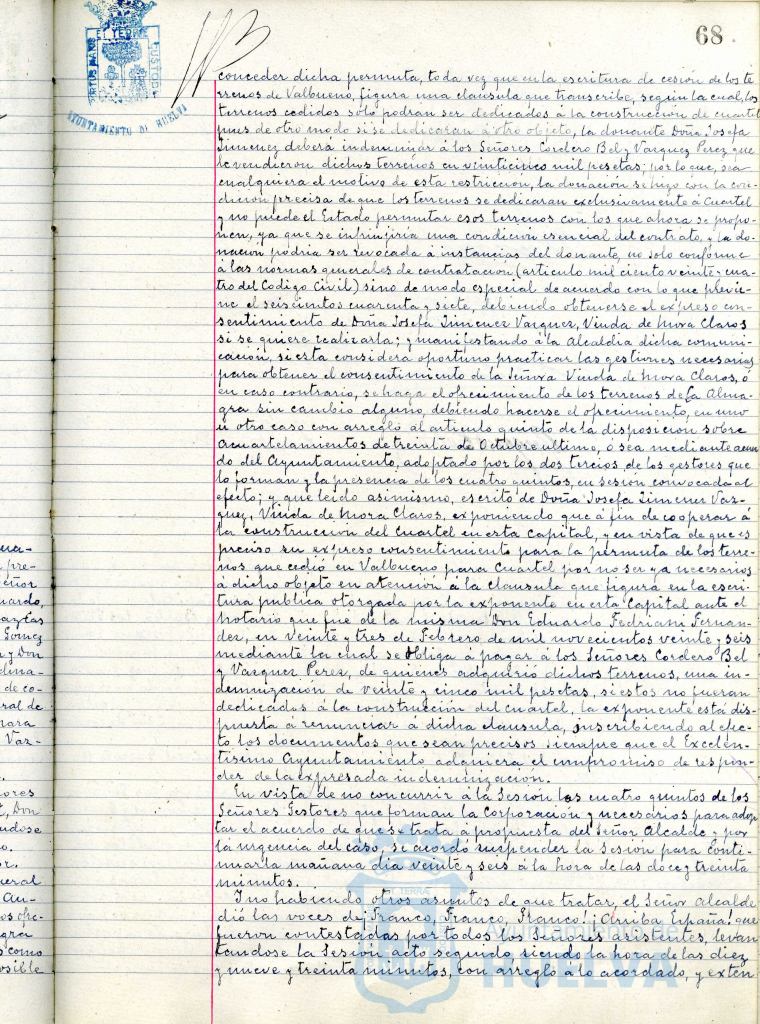 68.
AYUNTAMIENTO DE HUELVA
conceder dicha permuta, toda vez que en la escritura de cesión de los te
rrenos de Valbueno, figura una clausula que transcribe, según la cual, los
terrenos cedidos solo podran ser dedicados á la construcción de cuartel
pues de otro modo si se dedicaran á otro objeto, la donante Doña Josefa
Jimenez deberá indemnizar á los Señores Cordero Bel y Vazquez Perez que
le vendieron dichos terrenos en veinticinco mil pesetas; por lo que, sea
cualquiera el motivo de esta restricción, la donación se hizo con la con-
dición precisa de que los terrenos se dedicaran exclusivamente á Cuartel
y no puede el Estado permutar esos terrenos con los que ahora se propo-
nen, ya que se infrinjiría una condición esencial del contrato, y la do-
nación podria ser revocada á instancias del donante, no solo conforme
á las normas generales de contratación (articulo mil ciento veinte y cua-
tro del Codigo Civil) sino de modo especial de acuerdo con lo que previe-
ne el seiscientos cuarenta y siete, debiendo obtenerse el expreso con-
sentimiento de Doña Josefa Jimenez Vazquez, Viuda de Mora Claros
si se quiere realizarla; y manifestando á la Alcaldia dicha comuni-
cación, si esta considera oportuno practicar las gestiones necesarias
para obtener el consentimiento de la Señora Viuda de Mora Claros, ó
en caso contrario, se haga el ofrecimiento de los terrenos de la Alma-
gra sin cambio alguno, debiendo hacerse el ofrecimiento, en uno
ú otro caso con arreglo al articulo quinto de la disposición sobre
Acuartelamientos de treinta de Octubre ultimo, ó sea mediante acuer
do del Ayuntamiento, adoptado por los dos tercios de los gestores que
lo forman y la presencia de los cuatro quintos, en sesión convocada al
efecto; y que leido asimismo, escrito de Doña Josefa Jimenez Vaz-
quez, Viuda de Mora Claros, exponiendo que á fin de cooperar á
la construcción del Cuartel en esta Capital, y en vista de que es
preciso su expreso consentimiento para la permuta de los terre-
nos que cedió en Valbueno para Cuartel por no ser ya necesarios
á dicho objeto en atención á la Clausula que figura en la escri-
tura publica otorgada por la exponente en esta Capital ante el
Notario que fué de la misma Don Eduardo Fedriani Fernan-
dez, en veinte y tres de Febrero de mil novecientos veinte y seis
mediante la cual se obliga á pagar á los Señores Cordero Bel
y Vazquez Perez, de quienes adquirió dichos terrenos, una in-
demnización de veinte y cinco mil pesetas, si estos no fueran
dedicados á la construcción del cuartel, la exponente está dis-
puesta á renunciar á dicha clausula, suscribiendo al efec-
to los documentos que sean precisos siempre que el Excelen-
tisimo Ayuntamiento adquiera el compromiso de respon-
der de la expresada indemnización.
En vista de no concurrir á la Sesión los cuatro quintos de los
Señores Gestores que forman la Corporación y necesarios para adop-
tar el acuerdo de que se trata á propuesta del Señor Alcalde y por
la urgencia del caso, se acordó suspender la Sesión para conti-
nuarla mañana dia veinte y seis á la hora de las doce y treinta
minutos.
Y no habiendo otros asuntos de que tratar, el Señor Alcalde
dió las voces de ¡Franco, Franco, Franco! ¡Arriba España! que
fueron contestadas por todos los Señores asistentes, levan
tandose la Sesión acto seguido siendo la hora de las diez
y nueve y treinta minutos, con arreglo á lo acordado, y exten
Ayuntamiento de
HUELVA